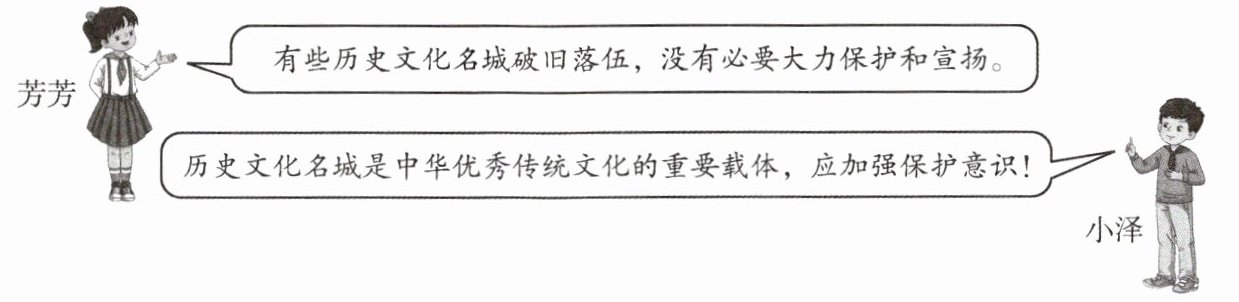 有些历史文化名城破旧落伍，没有必要大力保护和宣扬。
芳芳
历史文化名城是中华优秀传统文化的重要载体，应加强保护意识！
小泽